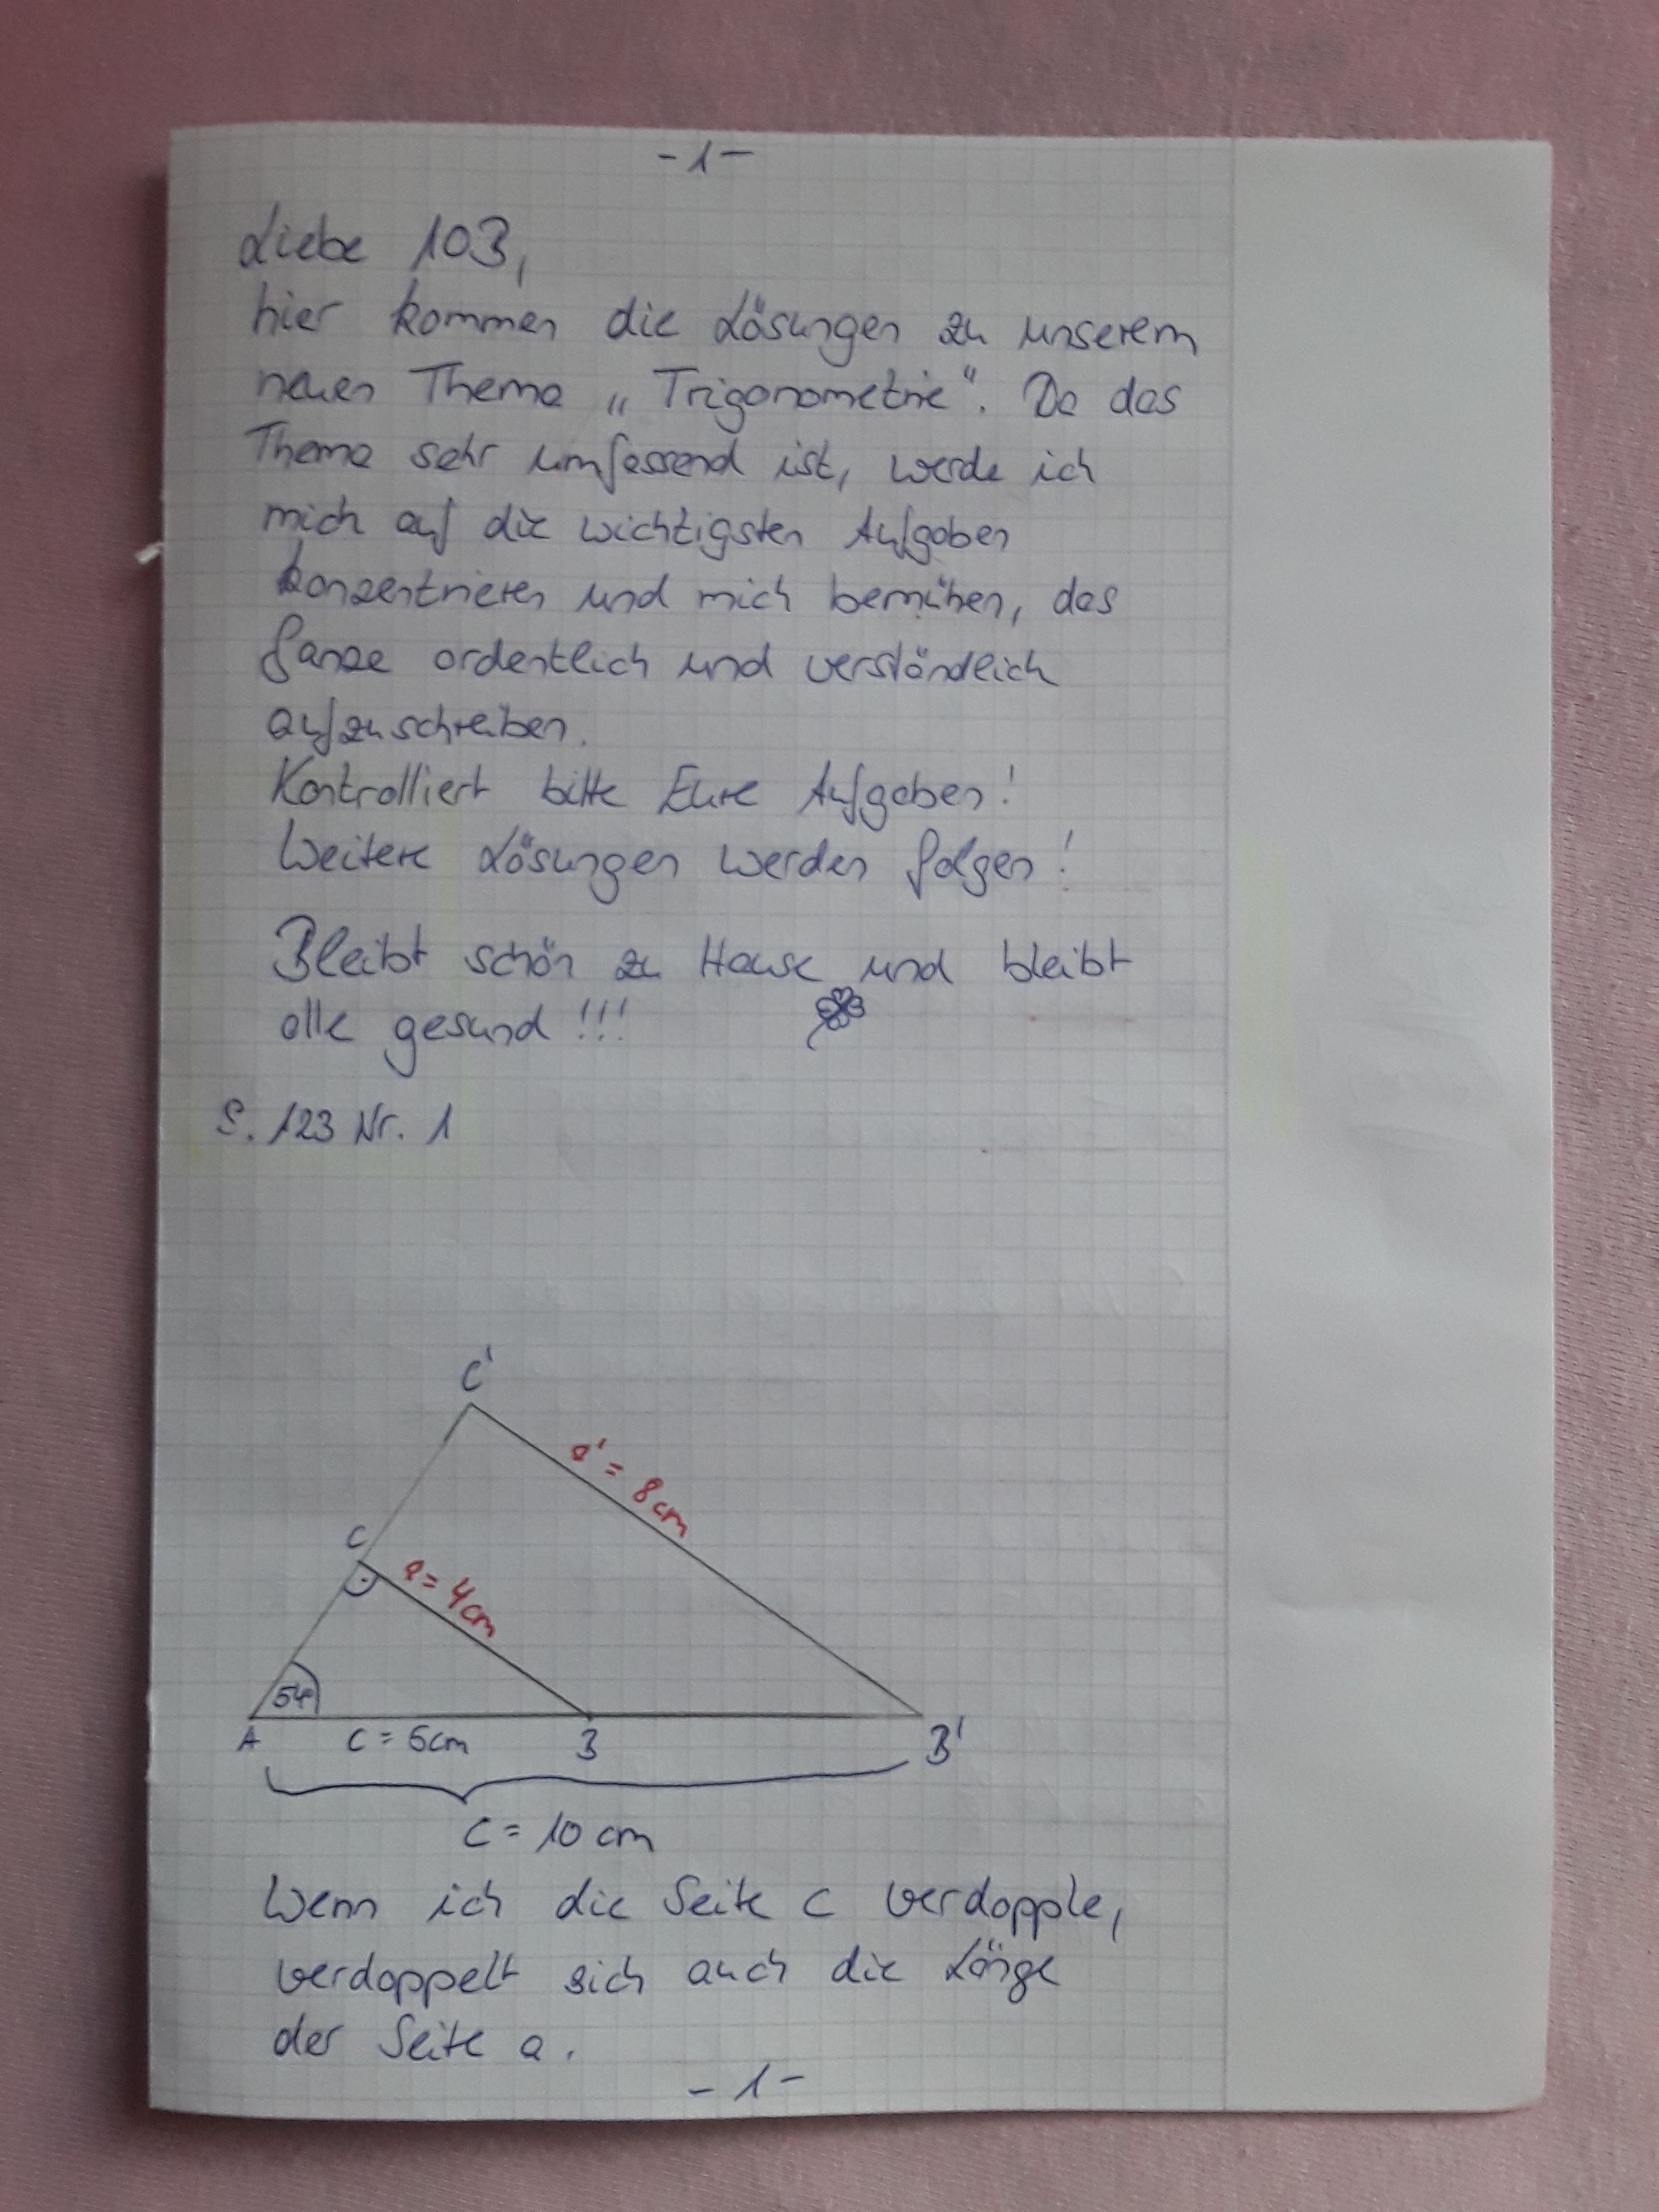 - 1 -
Liebe 103,
hier kommen die Lösungen zu unserem
neuen Thema „Trigonometrie". Da das
Thema sehr umfassend ist, werde ich
mich auf die wichtigsten Aufgaben
konzentrieren und mich bemühen, das
Ganze ordentlich und verständlich
aufzuschreiben.
Kontrolliert bitte Eure Aufgaben!
Weitere Lösungen werden folgen!
Bleibt schön zu Hause und bleibt
alle gesund!!!
S. 123 Nr. 1
C'
a' = 8cm
C
a = 4cm
54°
A c = 5cm B B'
c = 10 cm
Wenn ich die Seite c verdopple,
verdoppelt sich auch die Länge
der Seite a.
- 1 -